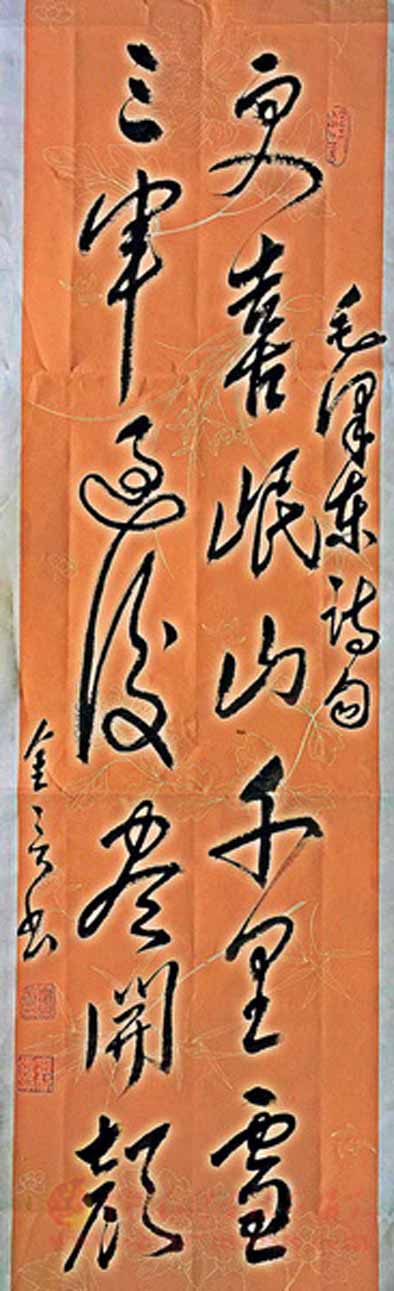 毛泽东诗句
更喜岷山千里雪
三军过後尽開颜